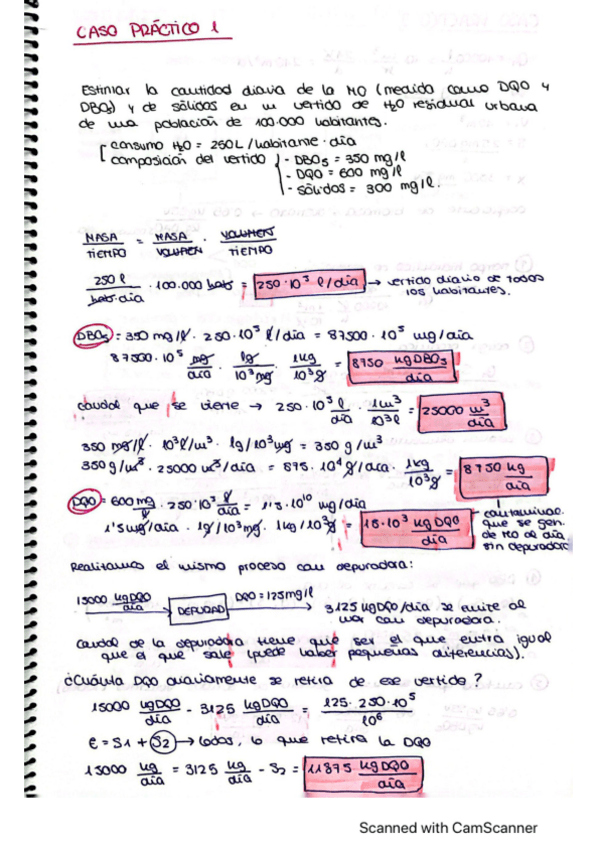 CASO PRÁCTICO 1
Estimar la cantidad diaria de la MO (medido como DQO y
DBO5) y de sólidos en un vertido de H2O residual urbana
de una población de 100.000 habitantes.
consumo H2O = 250L/habitante·día
composición del vertido - DBO5 = 350 mg/l
- DQO = 600 mg/l
- sólidos = 300 mg/l.
MASA/TIEMPO = MASA/VOLUMEN · VOLUMEN/TIEMPO
250 l/hab·dia · 100.000 hab = 250·10^5 l/día → vertido diario de todos
los habitantes.
DBO5 = 350 mg/l · 250·10^5 l/dia = 87500·10^5 mg/dia
87500·10^5 mg/dia · 1g/10^3 mg · 1kg/10^3 g = 8750 kg DBO5/dia
caudal que se vierte → 250·10^5 l/dia · 1m^3/10^3 l = 25000 m^3/dia
350 mg/l · 10^3 l/m^3 · 1g/10^3 mg = 350 g/m^3
350 g/m^3 · 25000 m^3/dia = 875·10^4 g/dia · 1kg/10^3 g = 8750 kg/dia
DQO = 600mg/l · 250·10^5 l/dia = 1'5·10^10 mg/dia
1'5 mg/dia · 1g/10^3 mg · 1kg/10^3 g = 15·10^3 kg DQO/dia
contaminac.
que se gen.
de MO al día
sin depurador
Realizamos el mismo proceso con depuradora:
15000 kg DQO/dia → DEPURAD → DQO = 125mg/l 3125 kg DQO/dia se emite al
mar con depuradora.
Caudal de la depuradora tiene que ser el que entra igual
que el que sale (puede haber pequeñas diferencias)).
¿Cuánta DQO diariamente se retira de ese vertido?
15000 kg DQO/dia - 3125 kg DQO/dia = 125·250·10^5/10^6
e = S1 + S2 → lodos, lo que retira la DQO
15000 kg/dia = 3125 kg/dia - S2 = 11875 kg DQO/dia
Scanned with CamScanner